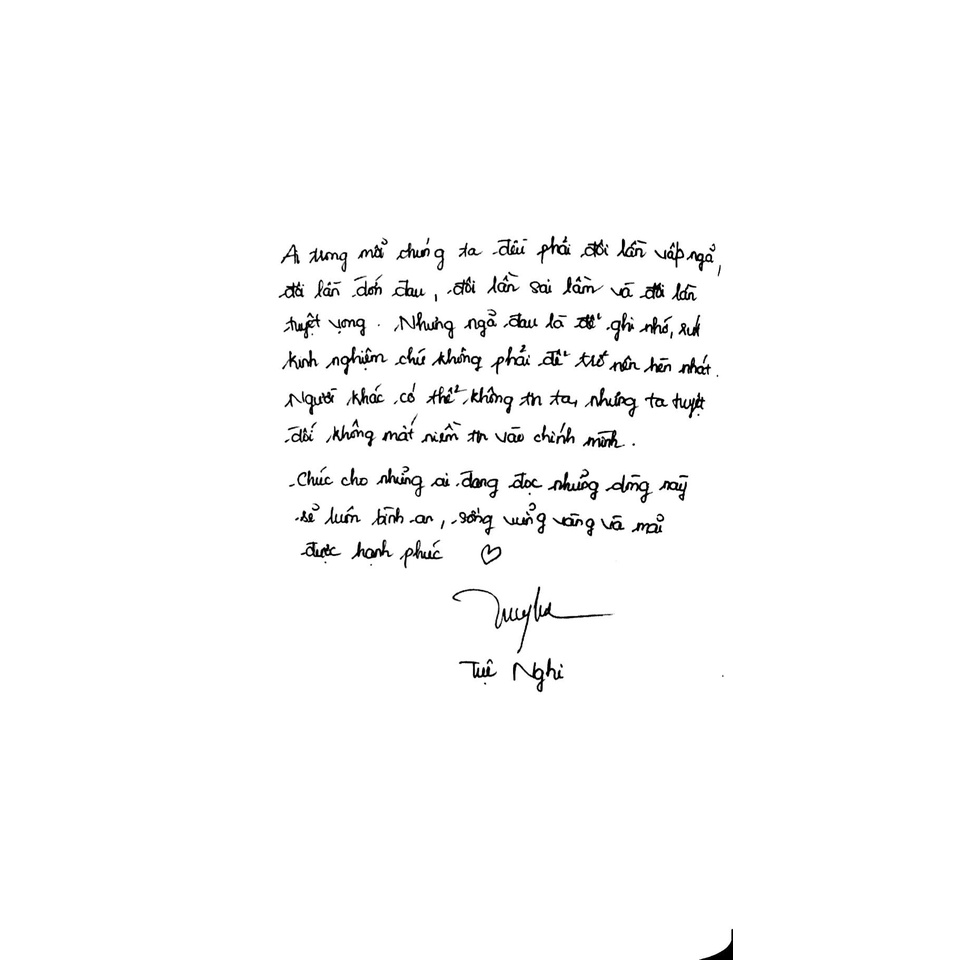 Ai trong mỗi chúng ta đều phải đôi lần vấp ngã,
đôi lần đớn đau, đôi lần sai lầm và đôi lần
tuyệt vọng. Nhưng ngã đau là để ghi nhớ, rút
kinh nghiệm chứ không phải để trở nên hèn nhát.
Người khác có thể không tin ta, nhưng ta tuyệt
đối không mất niềm tin vào chính mình.
Chúc cho những ai đang đọc những dòng này
sẽ luôn bình an, sống vững vàng và mãi
được hạnh phúc ♡
Tuệ Nghi